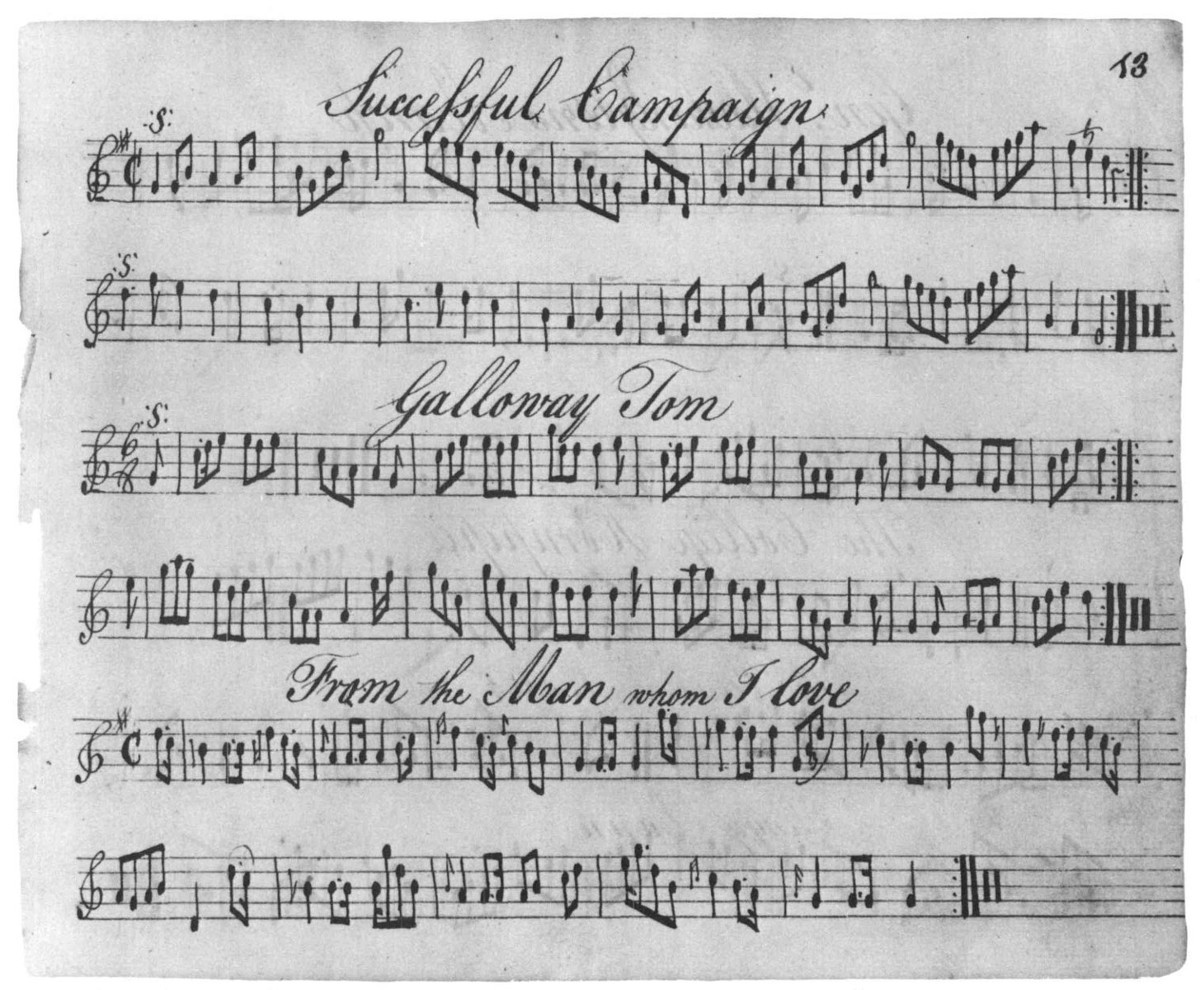 13
Successful Campaign
:S:
:S:
Galloway Tom
:S:
6
8
From the Man whom I love